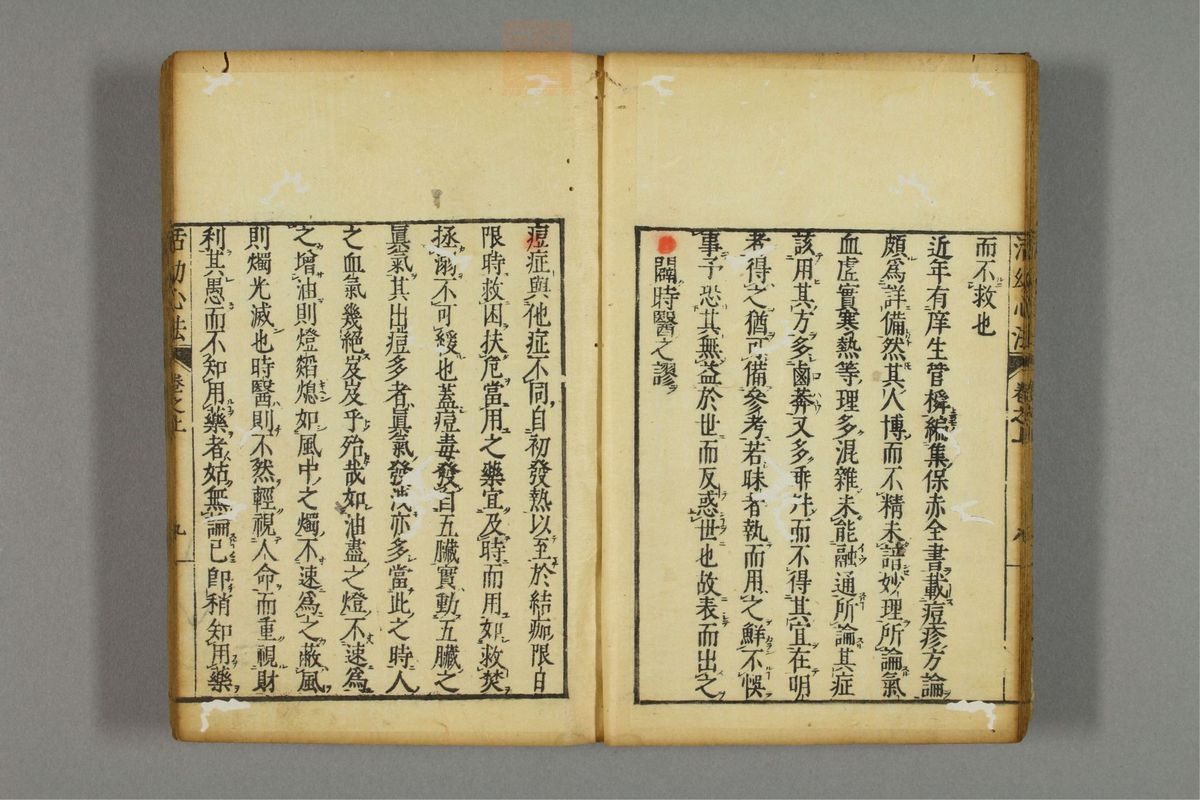 活幼心法 卷之上 八
而不救也
近年有庠生管橓編集保赤全書載痘疹方論
頗爲詳備然其人博而不精未諳妙理所論氣
血虛實寒熱等理多混雜未能融通所論其症
該用其方多鹵莽又多乖舛而不得其宜在明
者得之猶可備參考若昧者執而用之鮮不悞
事予恐其無益於世而反惑世也故表而出之
闢時醫之謬
痘症與他症不同自初發熱以至於結痂限日
限時救困扶危當用之藥宜及時而用如救焚
拯溺不可緩也蓋痘毒發自五臟實動五臟之
眞氣其出痘多者眞氣發洩亦多當此之時人
之血氣幾絕岌岌乎殆哉如油盡之燈不速爲
之增油則燈熖熄如風中之燭不速爲之蔽風
則燭光滅也時醫則不然輕視人命而重視財
利其愚而不知用藥者姑無論已卽稍知用藥
活幼心法 卷之上 九